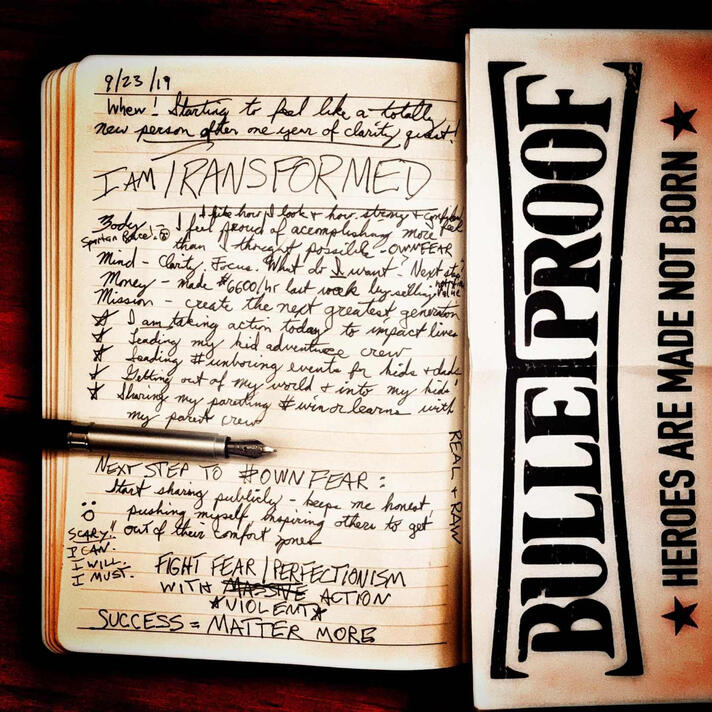 9/23/19
Whew! Starting to feel like a totally
new person after one year of clarity quest!
I AM TRANSFORMED
I like how I look + how strong + confident I feel
Body - I feel proud of accomplishing more
Spartan Race!
than I thought possible - OWNFEAR
Mind - Clarity. Focus. What do I want? Next step
Money - made $6600/hr last week by selling value
Mission - create the next greatest generation
☆ I am taking action today to impact lives
☆ Leading my kid adventure crew
☆ Leading #unboring events for kids + dads!
☆ Getting out of my world + into my kids'
☆ Sharing my parenting #winorlearns with
my parent crew
REAL + RAW
NEXT STEP TO #OWNFEAR:
Start sharing publicly - keeps me honest,
pushing myself, inspiring others to get
out of their comfort zones
SCARY!!
I CAN.
I WILL.
I MUST.
FIGHT FEAR / PERFECTIONISM
WITH MASSIVE ACTION
☆VIOLENT☆
SUCCESS = MATTER MORE
BULLETPROOF
★ HEROES ARE MADE NOT BORN ★